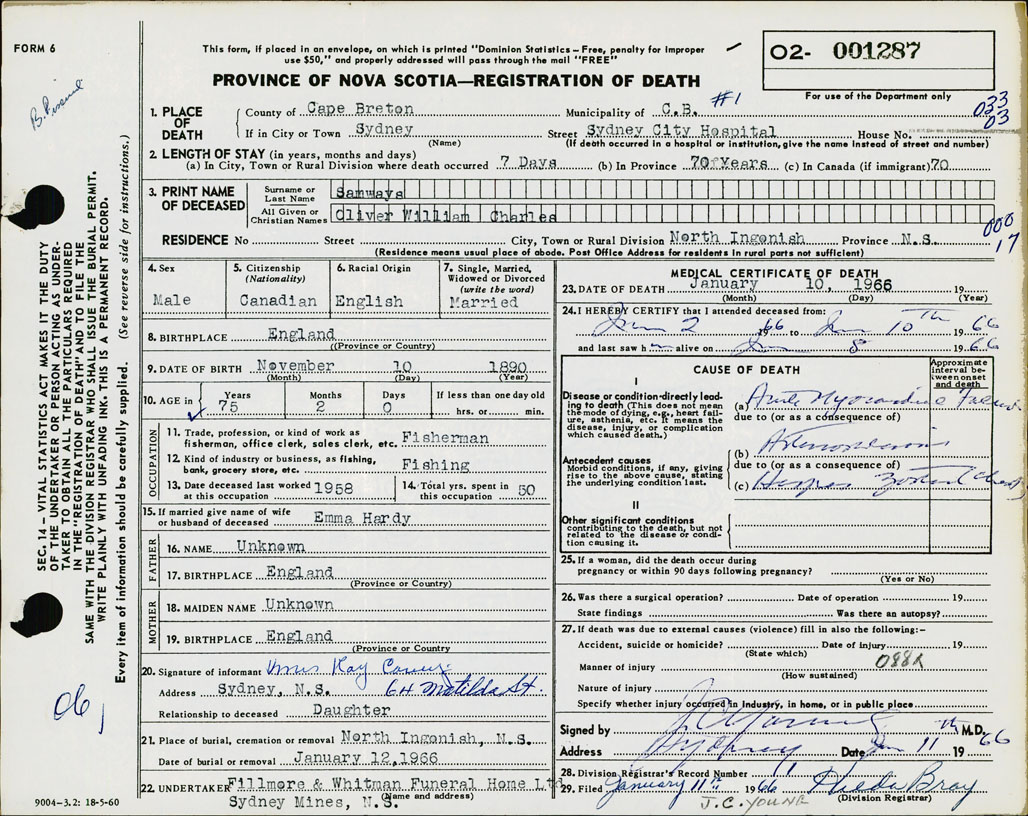 FORM 6
This form, if placed in an envelope, on which is printed "Dominion Statistics – Free, penalty for improper
use $50," and properly addressed will pass through the mail "FREE"
PROVINCE OF NOVA SCOTIA—REGISTRATION OF DEATH
02- 001287
For use of the Department only
#1
033
03
1. PLACE OF DEATH
County of Cape Breton Municipality of C.B.
If in City or Town Sydney Street Sydney City Hospital House No.
(Name) (If death occurred in a hospital or institution, give the name instead of street and number)
2. LENGTH OF STAY (in years, months and days)
(a) In City, Town or Rural Division where death occurred 7 Days (b) In Province 70 Years (c) In Canada (if immigrant) 70
3. PRINT NAME OF DECEASED
Surname or Last Name Samways
All Given or Christian Names Oliver William Charles
000
17
RESIDENCE No Street City, Town or Rural Division North Ingonish Province N.S.
(Residence means usual place of abode. Post Office Address for residents in rural parts not sufficient)
4. Sex
Male
5. Citizenship (Nationality)
Canadian
6. Racial Origin
English
7. Single, Married, Widowed or Divorced (write the word)
Married
8. BIRTHPLACE England
(Province or Country)
9. DATE OF BIRTH November 10 1890
(Month) (Day) (Year)
10. AGE in Years 75 Months 2 Days 0 If less than one day old hrs. or min.
OCCUPATION
11. Trade, profession, or kind of work as
fisherman, office clerk, sales clerk, etc. Fisherman
12. Kind of industry or business, as fishing,
bank, grocery store, etc. Fishing
13. Date deceased last worked at this occupation 1958
14. Total yrs. spent in this occupation 50
15. If married give name of wife
or husband of deceased Emma Hardy
FATHER
16. NAME Unknown
17. BIRTHPLACE England
(Province or Country)
MOTHER
18. MAIDEN NAME Unknown
19. BIRTHPLACE England
(Province or Country)
20. Signature of informant Mrs Kay
Address Sydney, N.S. 64 Matilda St.
Relationship to deceased Daughter
21. Place of burial, cremation or removal North Ingonish, N.S.
Date of burial or removal January 12, 1966
22. UNDERTAKER Fillmore & Whitman Funeral Home Ltd
(Name and address)
Sydney Mines, N.S.
MEDICAL CERTIFICATE OF DEATH
23. DATE OF DEATH January 10, 1966 19
(Month) (Day) (Year)
24. I HEREBY CERTIFY that I attended deceased from:
Jan 2 1966 to Jan 10th 1966
and last saw him alive on Jan 8 1966
CAUSE OF DEATH
Approximate interval between onset and death
I
Disease or condition directly leading
to death (This does not mean
the mode of dying, e.g., heart failure,
asthenia, etc. It means the
disease, injury, or complication
which caused death.)
(a) Acute Myocardial Failure
due to (or as a consequence of)
Antecedent causes
Morbid conditions, if any, giving
rise to the above cause, stating
the underlying condition last.
(b) Arteriosclerosis
due to (or as a consequence of)
(c) Herpes Zoster Chest
II
Other significant conditions
contributing to the death, but not
related to the disease or condition
causing it.
25. If a woman, did the death occur during
pregnancy or within 90 days following pregnancy?
(Yes or No)
26. Was there a surgical operation? Date of operation 19
State findings Was there an autopsy?
27. If death was due to external causes (violence) fill in also the following:–
Accident, suicide or homicide? Date of injury 19
(State which)
088X
Manner of injury
(How sustained)
Nature of injury
Specify whether injury occurred in industry, in home, or in public place
Signed by J C Young M.D.
Address Sydney Date Jan 11th 1966
28. Division Registrar's Record Number 11
29. Filed January 11th 1966 Bray
(Division Registrar)
J.C. YOUNG
SEC. 14 – VITAL STATISTICS ACT MAKES IT THE DUTY
OF THE UNDERTAKER OR PERSON ACTING AS UNDERTAKER
TO OBTAIN ALL THE PARTICULARS REQUIRED
IN THE "REGISTRATION OF DEATH" AND TO FILE THE
SAME WITH THE DIVISION REGISTRAR WHO SHALL ISSUE THE BURIAL PERMIT.
WRITE PLAINLY WITH UNFADING INK. THIS IS A PERMANENT RECORD.
Every item of information should be carefully supplied. (See reverse side for instructions.)
06
9004-3.2: 18-5-60